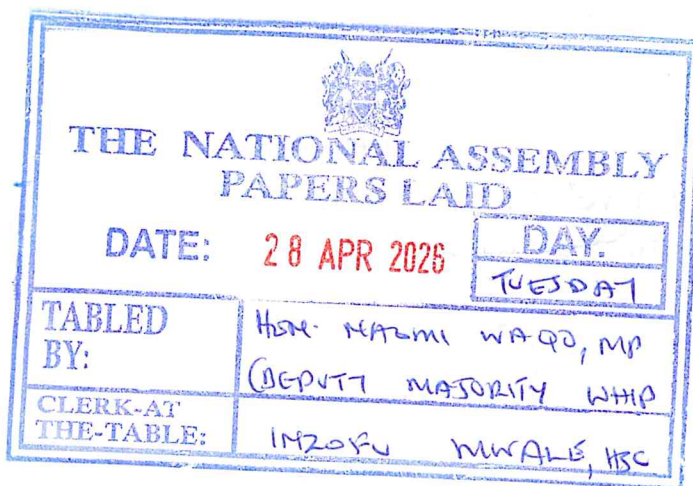 THE NATIONAL ASSEMBLY
PAPERS LAID
DATE: 28 APR 2026
DAY.
TUESDAY
TABLED BY:
Hon. NAOMI WAQO, MP
(DEPUTY MAJORITY WHIP
CLERK-AT
THE-TABLE:
INZOFU MWALE, HSC